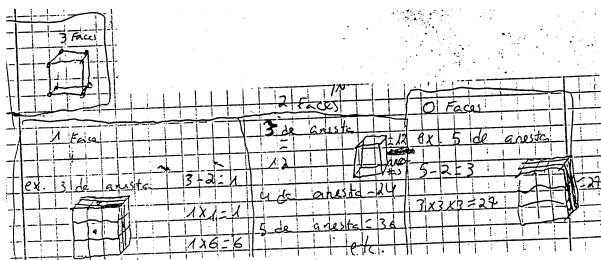 3 Faces
1 Face
ex. 3 de aresta
3-2=1
1x1=1
1x6=6
2 Faces
3 de aresta
=
12
=12
4 de aresta=24
5 de aresta=36
etc.
0 Faces
ex. 5 de aresta
5-2=3
3x3x3=27
=27